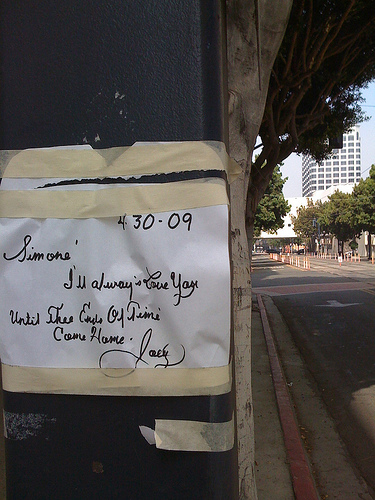 4.30-09
Simone'
I'll alway's Love You
Until Thee Ends Of Time
Come Home.
Jack